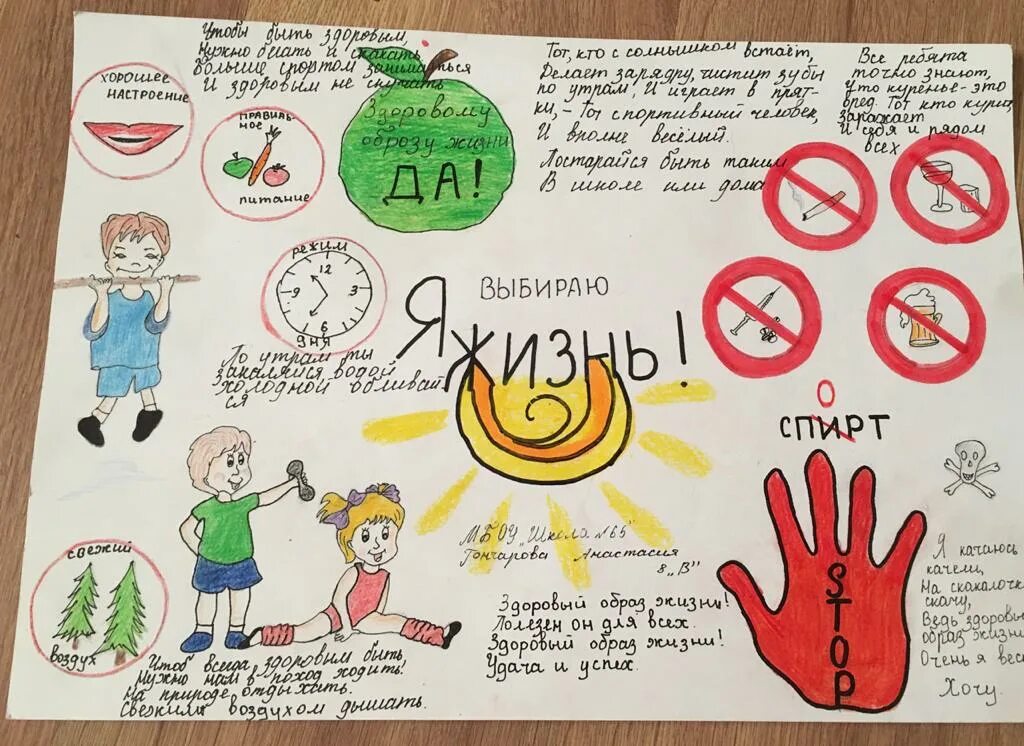 Чтобы быть здоровым,
Нужно бегать и скакать
Больше спортом заниматься
И здоровым не скучать
Тот, кто с солнышком встаёт,
Делает зарядку, чистит зубы
по утрам, И играет в прят-
ки, - Тот спортивный человек,
И вполне весёлый.
Постарайся быть таким
В школе или дома
Все ребята
точно знают,
Что куренье - это
вред. Тот кто курит,
Заражает
И себя и рядом
всех
ХОРОШЕЕ
НАСТРОЕНИЕ
ПРАВИЛЬ-
НОЕ
питание
Здоровому
образу жизни
ДА!
режим
12
9 3
6
дня
По утрам ты
закаляйся, водой
холодной обливай
ся
Я ВЫБИРАЮ
ЖИЗНЬ!
О
СПИРТ
STOP
свежий
воздух
МБОУ "Школа №65"
Гончарова Анастасия
8 "В"
Здоровый образ жизни!
Полезен он для всех.
Здоровый образ жизни!
Удача и успех.
Чтоб всегда здоровым быть
Нужно нам в поход ходить!
На природе отдыхать.
Свежим воздухом дышать.
Я качаюсь
качели,
На скакалочк
скачу,
Ведь здоровы
образ жизни
Очень я вес
Хочу.